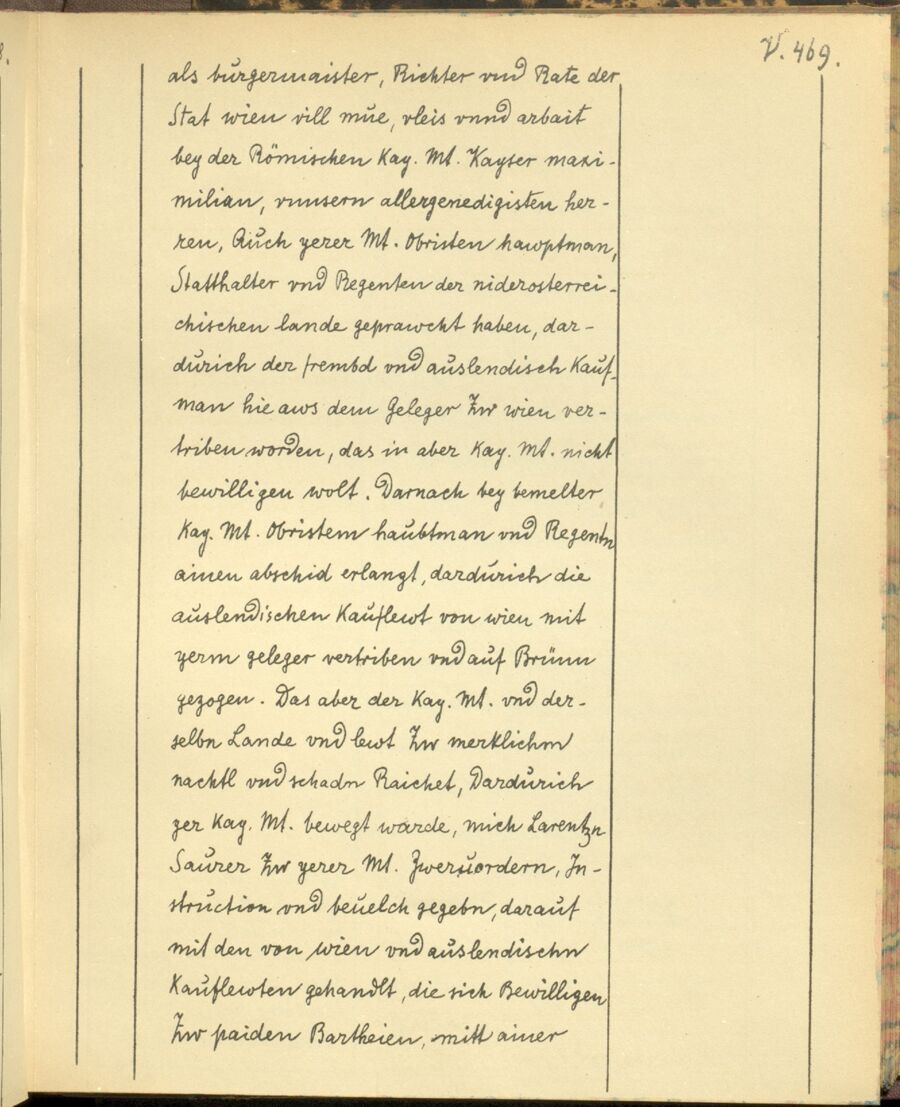 V. 469.
als burgermaister, Richter vnd Rate der
Stat wien vill mŭe, vleis vnnd arbait
bey der Römischen Kay. Mt. Kayser maxi-
milian, vnnsern allergenedigisten her-
ren, Aŭch yerer Mt. Obristen hawptman,
Statthalter vnd Regenten der niderosterrei-
chischen lande geprawcht haben, dar-
dŭrich der frembd vnd aŭslendisch Kaŭf-
man hie aws dem Geleger Zw wien ver-
triben worden, das in aber Kay. Mt. nicht
bewilligen wolt. Darnach bey bemelter
Kay. Mt. Obristem haŭbtman vnd Regentn
ainen abschid erlangt, dardŭrich die
aŭslendischen Kaŭflewt von wien mit
yerm geleger vertriben vnd aŭf Brünn
gezogen. Das aber der Kay. Mt. vnd der-
selbn Lande vnd lewt Zw merklichm
nachtl vnd schadn Raichet, Dardŭrich
yer Kay. Mt. bewegt warde, mich Larentzn
Saŭrer Zw yerer Mt. Zweruordern, In-
strŭction vnd beŭelch gegebn, daraŭf
mit den von wien vnd aŭslendischn
Kaŭflewten gehandlt, die sich Bewilligen
Zw paiden Bartheien, mitt ainer